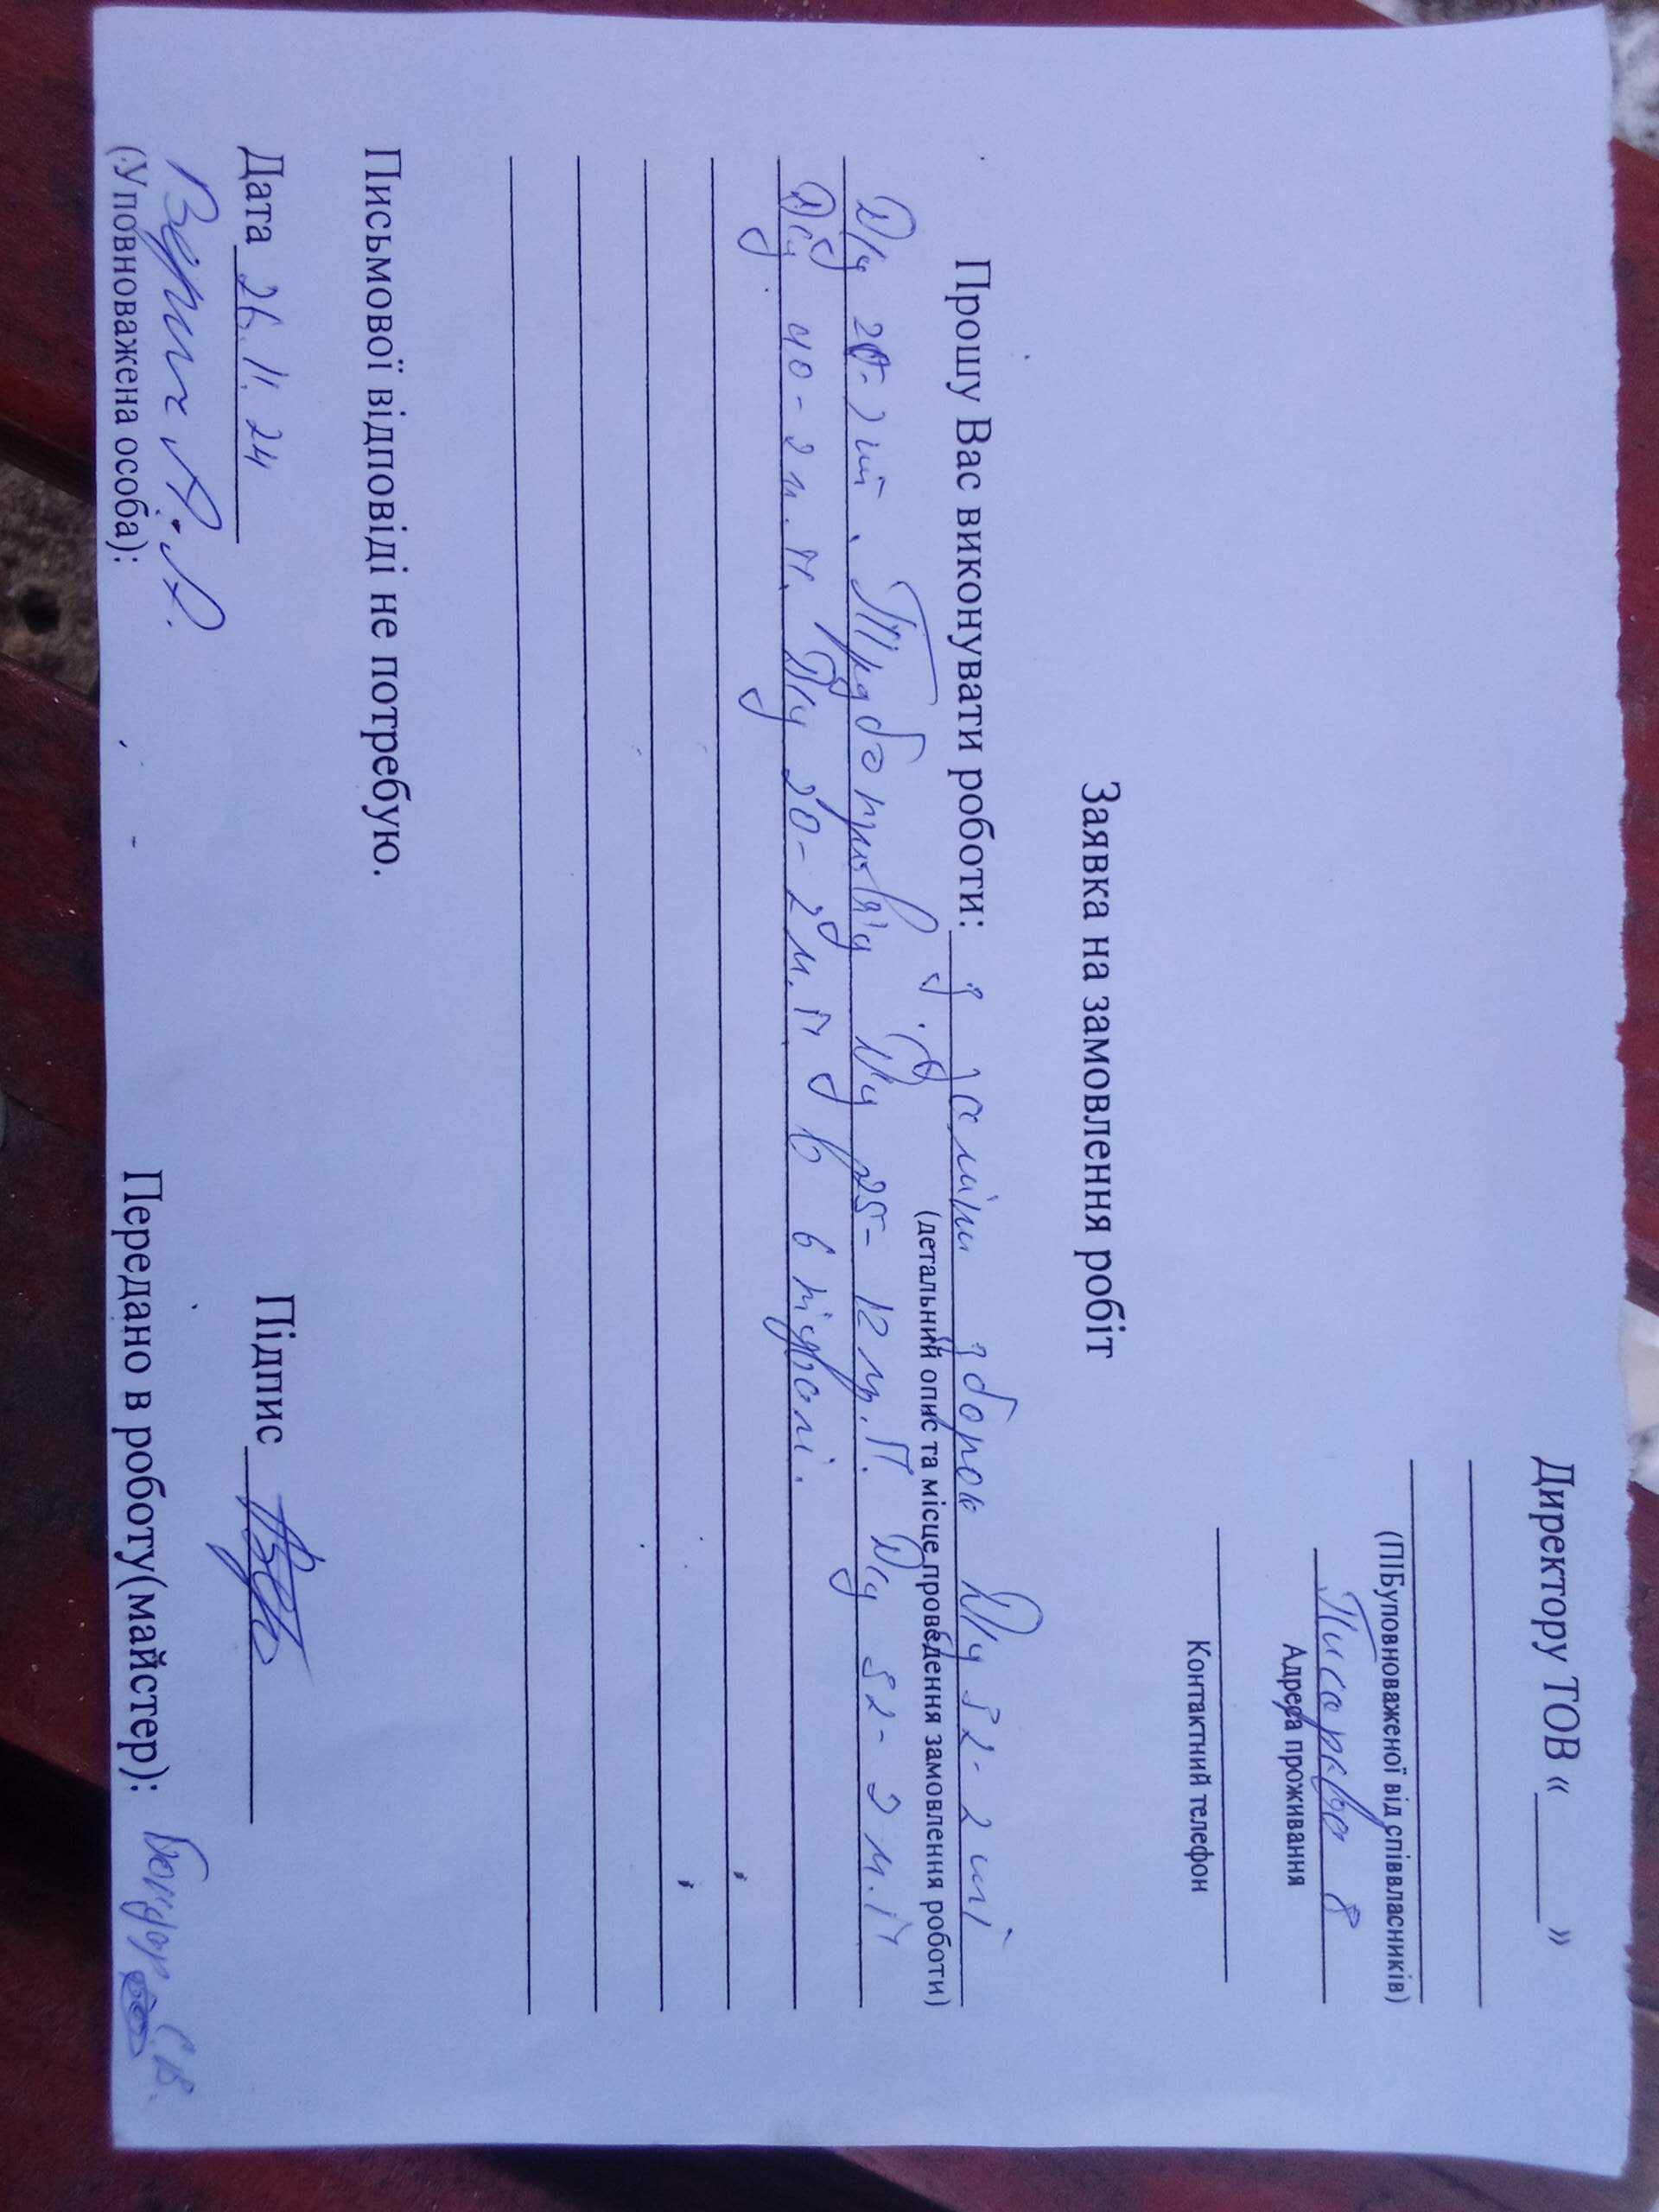 Директору ТОВ «______»
(ПІБуповноваженої від співвласників)
Писаржа 8
Адреса проживання
Контактний телефон
Заявка на замовлення робіт
Прошу Вас виконувати роботи: з заміни зборок Ду 32-2 шт
(детальний опис та місце проведення замовлення роботи)
Ду 20-2 шт. Трубопроводу Ду 25-12 м.п. Ду 32-2 м.п
Ду 40-2 м.п. Ду 20-2 м.п в підвалі.
Письмової відповіді не потребую.
Дата 26.11.24 Підпис
А.А.
(Уповноважена особа): Передано в роботу(майстер): Бондар С.В.